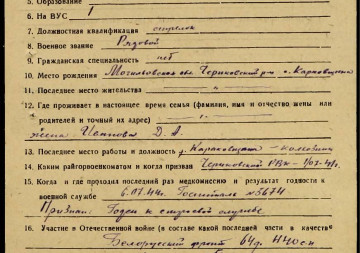 5. Образование
6. На ВУС 1
7. Должностная квалификация стрелок
8. Военное звание Рядовой
9. Гражданская специальность нет
10. Место рождения Могилевская обл. Чериковский р-н
11. Последнее место жительства — " —
12. Где проживает в настоящее время семья (фамилия, имя и отчество жены или
родителей и точный их адрес) — " —
жена Иванова Д. А.
13. Последнее место работы и должность
14. Каким райгорвоенкоматом и когда призван Чериковский РВК
15. Когда и где проходил последний раз медкомиссию и результат годности к
военной службе 6.07.44г. Госпиталь №5674
Признан: Годен к строевой службе
16. Участие в Отечественной войне (в составе какой последней части в качестве
Белорусский фронт